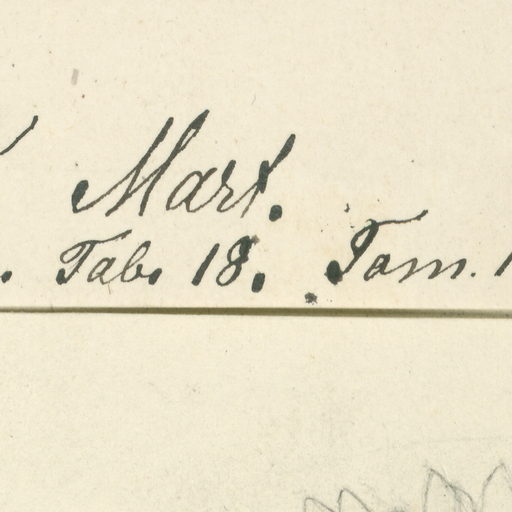 Mart.
Tab. 18. Tom. 1